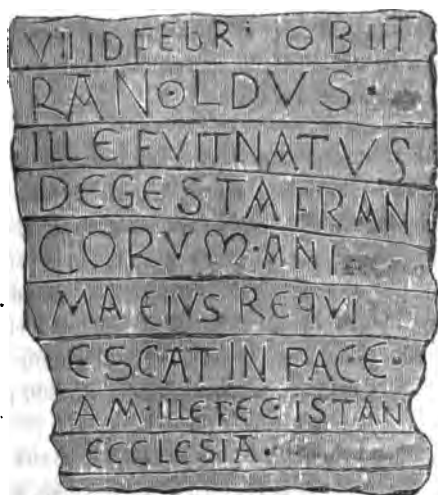 VIIIDFEBR· OBIIT
RANOLDVS·
ILLE FVIT NATVS
DE GESTA FRAN
CORVM·ANI
MA EIVS REQVI
ESCAT IN PACE·
AM·ILLE FECIT ISTAN
ECCLESIA·